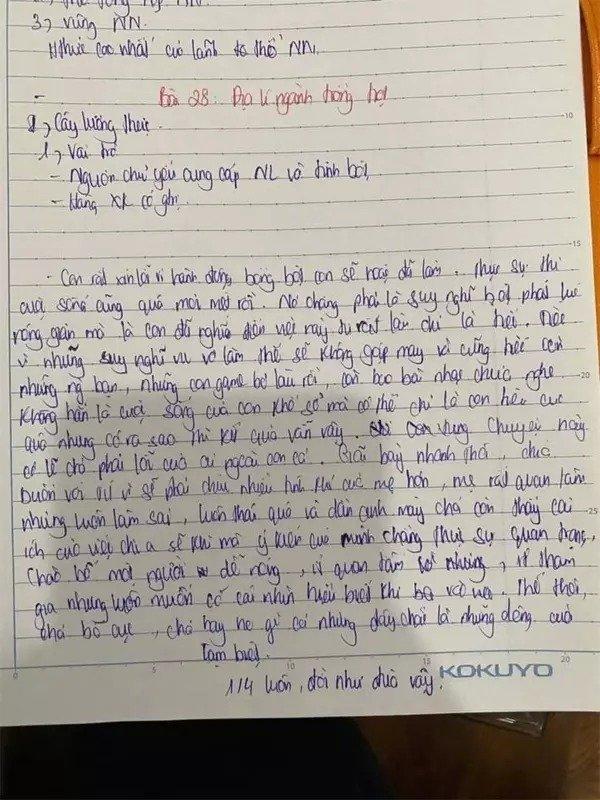 3, vùng NN.
Hthức cao nhất của lãnh tổ thổ NN.
Bài 28: Địa lí ngành trồng trọt
I, Cây lương thực.
1, Vai trò
- Nguồn chủ yếu cung cấp NL và tinh bột,
- Hàng XK có giá.
- Con rất xin lỗi vì hành động bồng bột con sẽ hoặc đã làm. Thực sự thì
cuộc sống cũng quá mỏi mệt rồi. Nó chẳng phải là suy nghĩ bột phát
mà là con đã nghĩ đến việc này từ rất lâu chỉ là hơi. Tiếc
vì những suy nghĩ vu vơ làm thế sẽ không gặp may vì cũng hết con
những ng bạn, những con game bỏ lâu rồi, còn bao bài nhạc chưa nghe
không hẳn là cuộc sống của con khổ sở mà có thể chỉ là con tiêu cực
quá nhưng có ra sao thì kết quả vẫn vậy. chuyện này
có lẽ chả phải lỗi của ai ngoài con cả. Giãi bày nhanh thôi, chắc
buồn vì sẽ phải chịu nhiều tính khí của mẹ hơn, mẹ rất quan tâm
nhưng luôn làm sai, luôn thái quá và dần cạnh này chả còn thấy cái
ích của việc chia sẻ khi mà ý kiến của mình chẳng thực sự quan trọng,
Chào bố một người dễ nóng, ít quan tâm nhưng, ít tham
gia nhưng luôn muốn có cái nhìn hiểu biết khi Thế thôi,
chả bố cục, chả hay ho gì cả nhưng đây chắc là những dòng cuối
Tạm biệt.
1/4 luôn, đời như đùa vậy.
KOKUYO
10
15
20
25
0
5
10
15
20